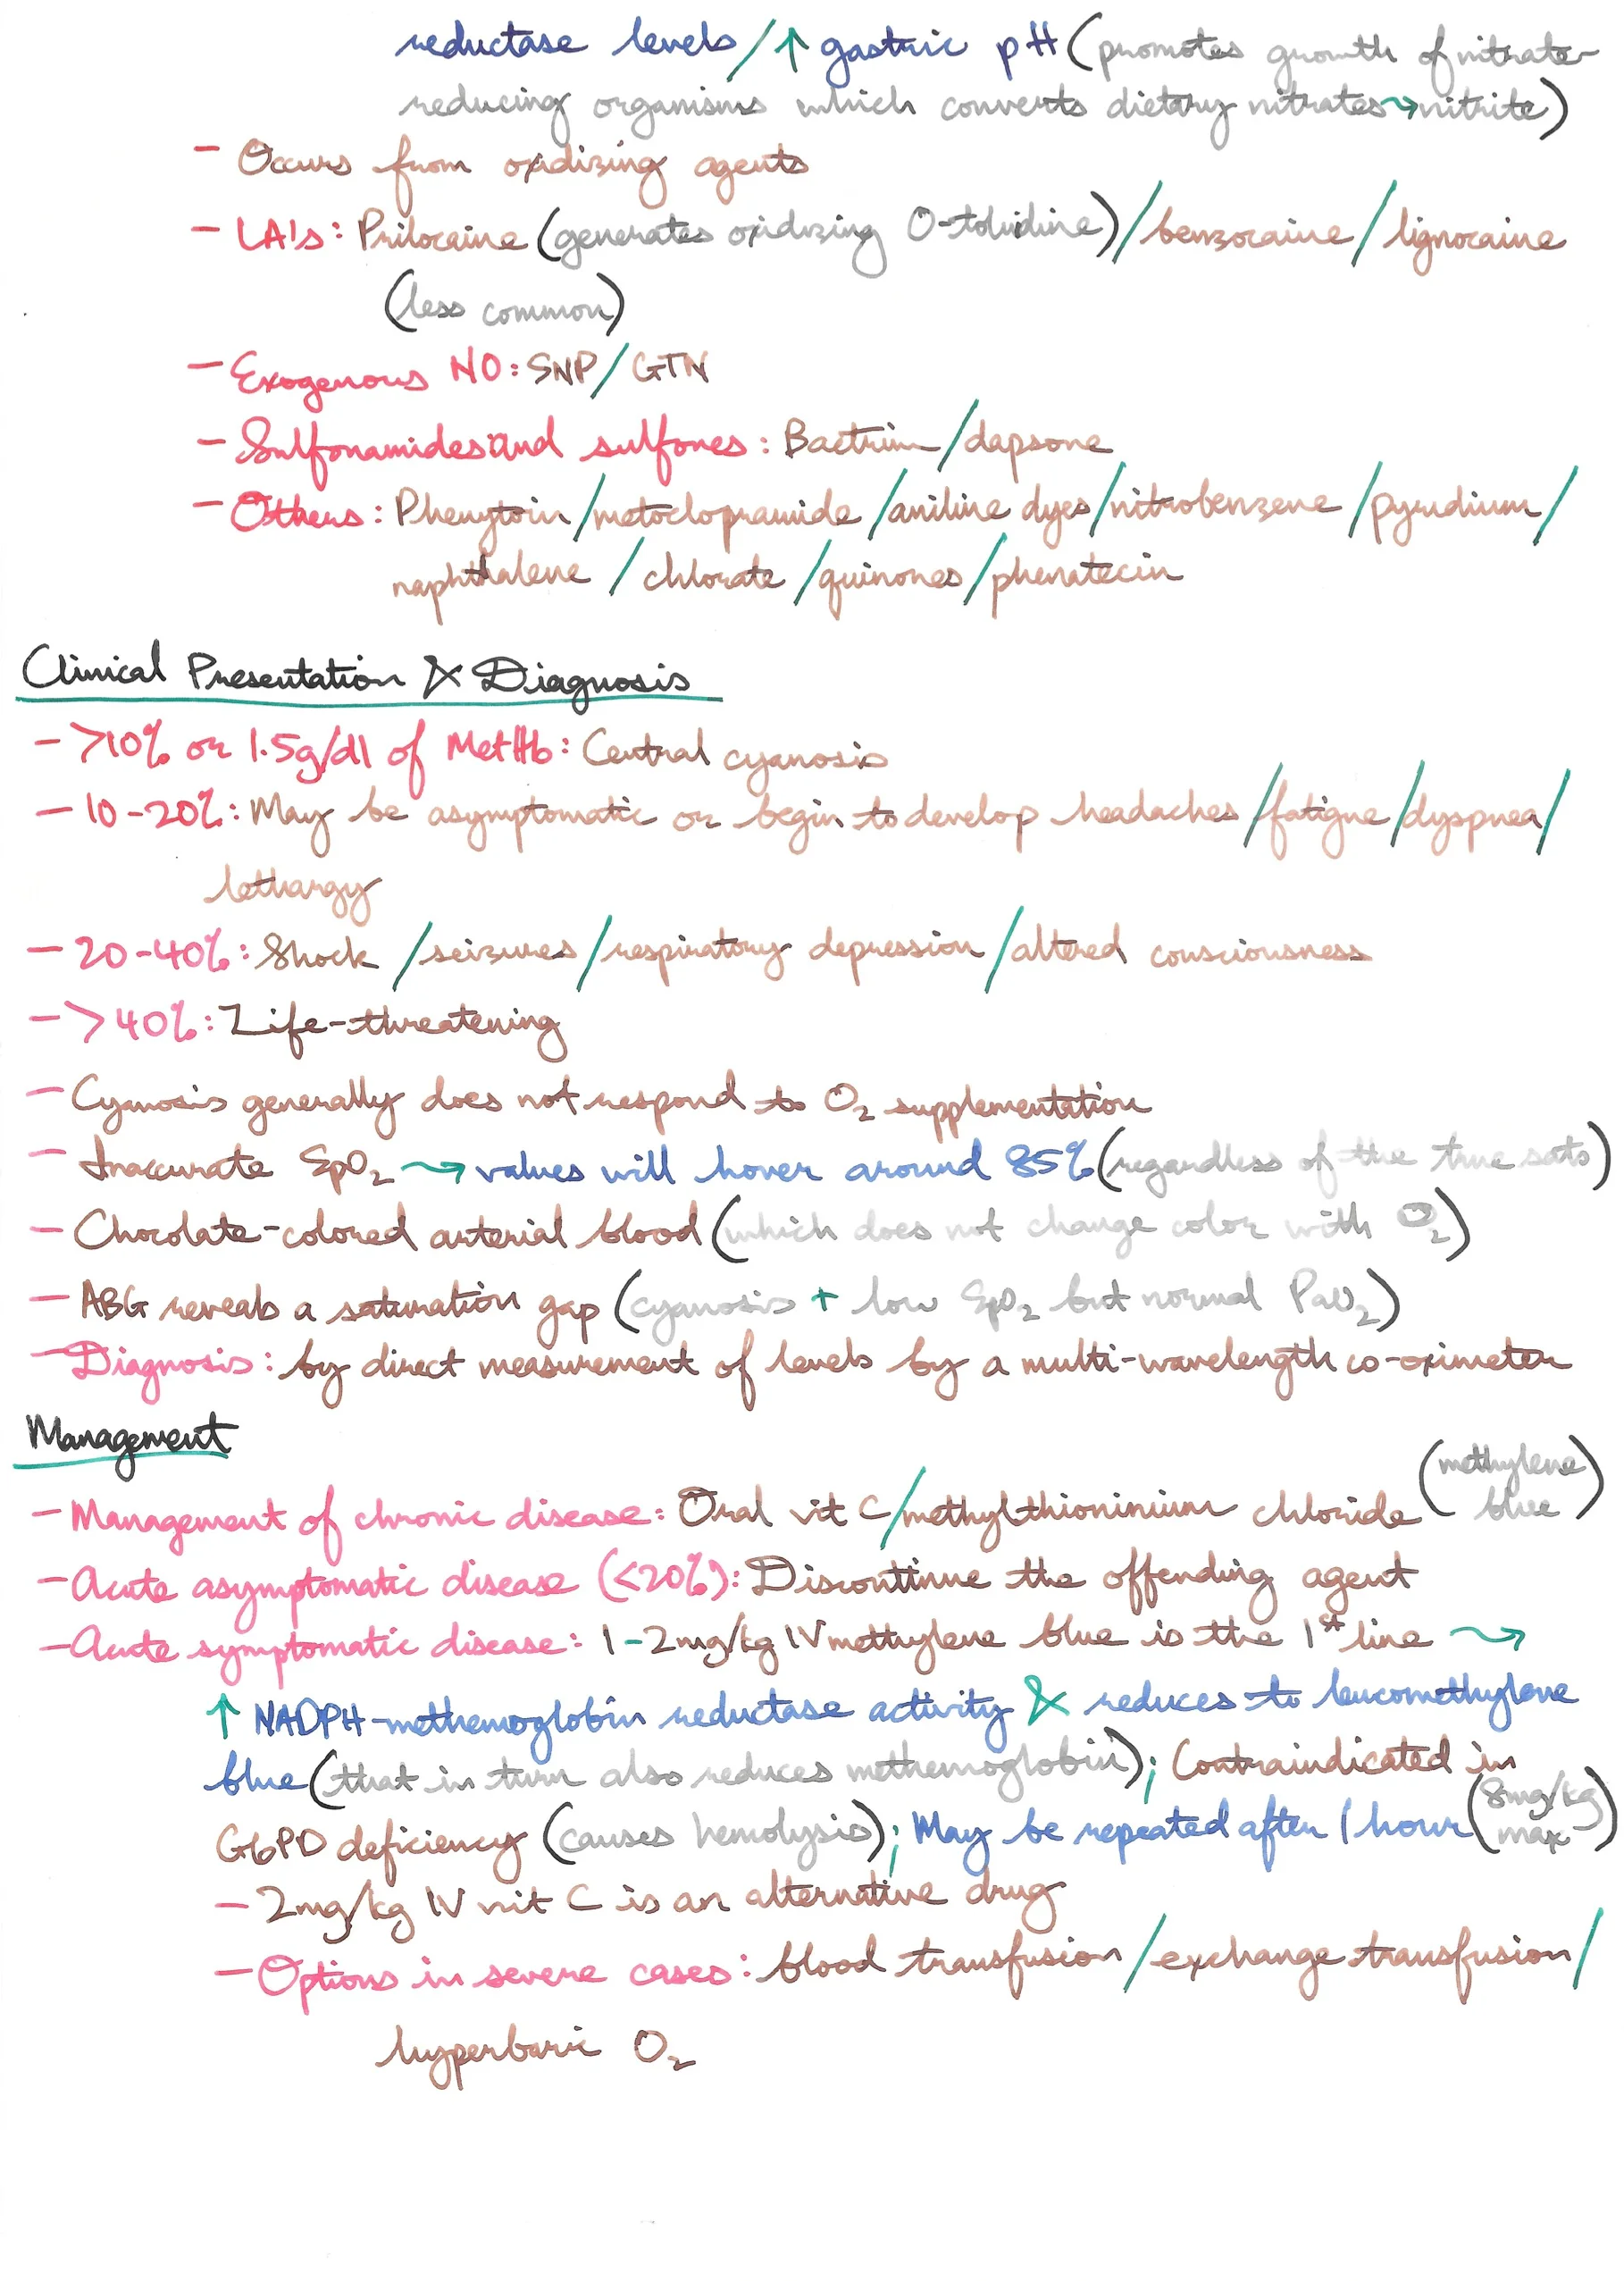 reductase levels/↑ gastric pH (promotes growth of nitrate-
reducing organisms which converts dietary nitrates → nitrite)
- Occurs from oxidizing agents
- LA's: Prilocaine (generates oxidizing O-toluidine)/benzocaine/lignocaine
(less common)
- Exogenous NO: SNP/GTN
- Sulfonamides and sulfones: Bactrim/dapsone
- Others: Phenytoin/metoclopramide/aniline dyes/nitrobenzene/pyridium/
naphthalene/chlorate/quinones/phenatecin
Clinical Presentation & Diagnosis
- >10% or 1.5g/dl of MetHb: Central cyanosis
- 10-20%: May be asymptomatic or begin to develop headaches/fatigue/dyspnea/
lethargy
- 20-40%: Shock/seizures/respiratory depression/altered consciousness
- >40%: Life-threatening
- Cyanosis generally does not respond to O₂ supplementation
- Inaccurate SpO₂ → values will hover around 85% (regardless of the true sats)
- Chocolate-colored arterial blood (which does not change color with O₂)
- ABG reveals a saturation gap (cyanosis + low SpO₂ but normal PaO₂)
- Diagnosis: by direct measurement of levels by a multi-wavelength co-oximeter
Management
- Management of chronic disease: Oral vit C/methylthioninium chloride (methylene blue)
- Acute asymptomatic disease (<20%): Discontinue the offending agent
- Acute symptomatic disease: 1-2mg/kg IV methylene blue is the 1st line →
↑ NADPH-methemoglobin reductase activity & reduces to leucomethylene
blue (that in turn also reduces methemoglobin); Contraindicated in
G6PD deficiency (causes hemolysis); May be repeated after 1 hour (8mg/kg max)
- 2mg/kg IV vit C is an alternative drug
- Options in severe cases: blood transfusion/exchange transfusion/
hyperbaric O₂